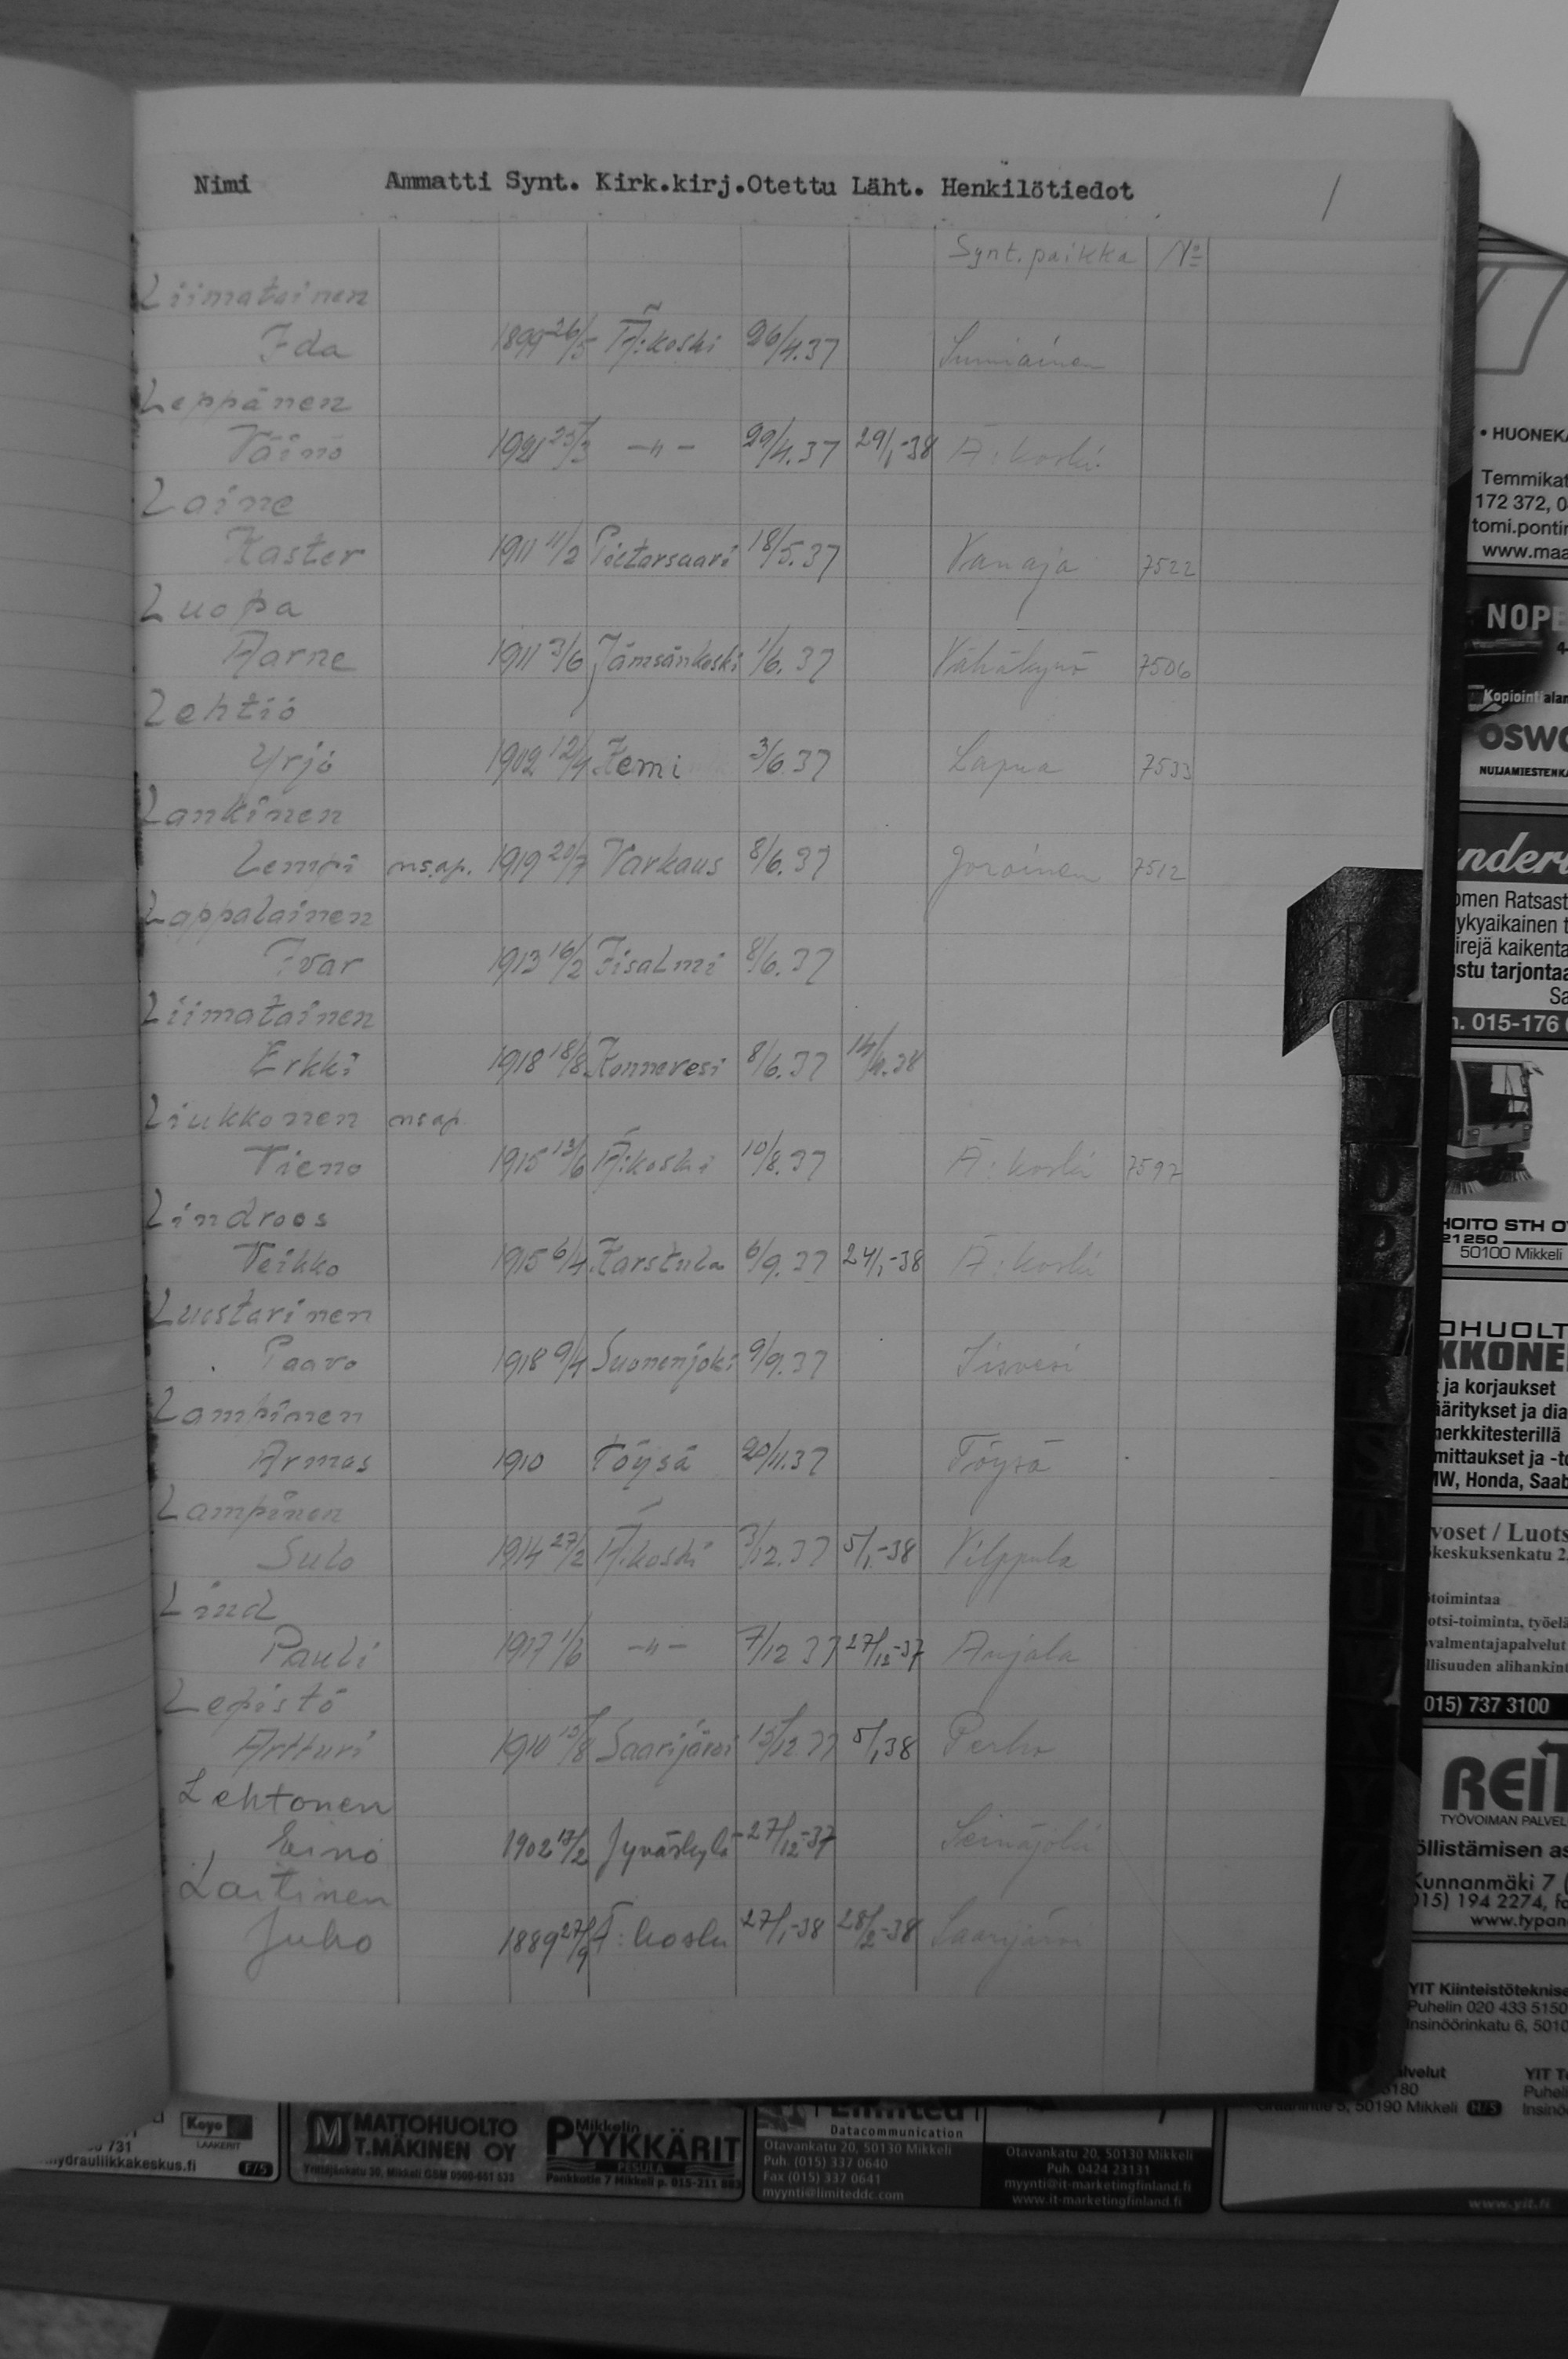 Nimi Ammatti Synt. Kirk.kirj. Otettu Läht. Henkilötiedot /
Synt.paikka No
Liimatainen
Ida 26/5 Ä:koski 26/4.37 Sumiainen
Leppänen
Väinö 1921 25/3 -"- 29/4.37 29/1-38 Ä:koski
Laine
Kaster 1911 11/2 Pietarsaari 18/5.37 Vanaja 7522
Luopa
Aarne 1911 3/6 Jämsänkoski 1/6.37 Vähäkyrö 7506
Lehtiö
Yrjö 1902 12/4 Kemi 3/6.37 Lapua 7533
Lankinen
Lempi ms.ap. 1919 20/7 Varkaus 8/6.37 Joroinen 7512
Lappalainen
Ivar 1913 16/2 Iisalmi 8/6.37
Liimatainen
Erkki 1918 18/8 Konnevesi 8/6.37 14/4.38
Liukkonen ms.ap.
Tieno 1915 13/6 Ä:koski 10/8.37 Ä:koski 7597
Lindroos
Veikko 1915 6/4 Karstula 6/9.37 24/1-38 Ä:koski
Luostarinen
Paavo 1918 9/4 Suonenjoki 9/9.37 Iisvesi
Lampinen
Armas 1910 Töysä 20/11.37 Töysä
Lampinen
Sulo 1914 27/2 Ä:koski 3/12.37 5/1-38 Vilppula
Lind
Pauli 1917 1/6 -"- 7/12 37 27/12-37 Anjala
Lepistö
Artturi 1910 15/8 Saarijärvi 15/12 37 5/1 38 Perho
Lehtonen
Eino 1902 17/2 Jyväskylä 27/12-37 Seinäjoki
Laitinen
Juho 1889 27/9 Ä:koski 27/1-38 28/2-38 Saarijärvi
• HUONEKA
Temmikat
172 372, 0
tomi.pontin
www.maa
NOPE
Kopiointi alan
OSWO
NUIJAMIESTENKA
nder
omen Ratsast
ykyaikainen t
irejä kaikenta
stu tarjontaa
Sa
. 015-176
HOITO STH O
21250
50100 Mikkeli
OHUOLT
KKONE
t ja korjaukset
ääritykset ja dia
merkkitesterillä
mittaukset ja -to
MW, Honda, Saab
voset / Luots
keskuksenkatu 2
toimintaa
otsi-toiminta, työelä
valmentajapalvelut
llisuuden alihankint
015) 737 3100
REIT
TYÖVOIMAN PALVEL
öllistämisen as
Kunnanmäki 7
015) 194 2274, fa
www.typan
YIT Kiinteistöteknise
Puhelin 020 433 5150
Insinöörinkatu 6, 5010
alvelut
5180
5, 50190 Mikkeli H/5
YIT T
Puheli
Insinö
www.yit.fi
Koyo
LAAKERIT
731
ydrauliikkakeskus.fi F/5
M MATTOHUOLTO
T.MÄKINEN OY
Yrittäjänkatu 30, Mikkeli GSM 0500-651 533
Mikkelin
PYYKKÄRIT
PESULA
Pankkotie 7 Mikkeli p. 015-211 883
Limited
Datacommunication
Otavankatu 20, 50130 Mikkeli
Puh. (015) 337 0640
Fax (015) 337 0641
myynti@limiteddc.com
Otavankatu 20, 50130 Mikkeli
Puh. 0424 23131
myynti@it-marketingfinland.fi
www.it-marketingfinland.fi